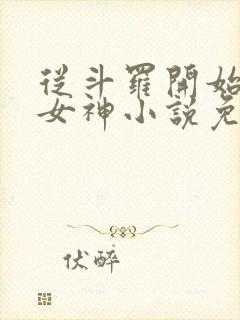 從斗羅開始
女神小説免
伏醉